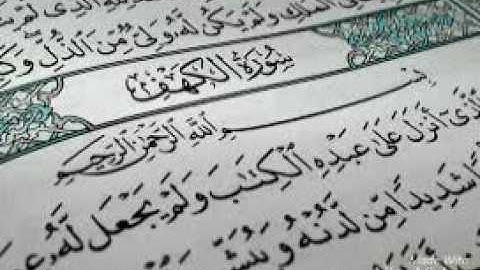 الَّذِى لَمْ يَتَّ
الْمُلْكِ وَلَمْ يَكُن لَّهُۥ وَلِىٌّ مِّنَ الذُّلِّ وَكَ
سُورَةُ الْكَهْفِ
بِسْمِ اللَّهِ الرَّحْمَٰنِ الرَّحِيمِ
لَّذِىٓ أَنزَلَ عَلَىٰ عَبْدِهِ الْكِتَٰبَ وَلَمْ يَجْعَل لَّهُۥ عِ
شَدِيدًا مِّن لَّدُنْهُ وَيُبَشِّرَ
Made With